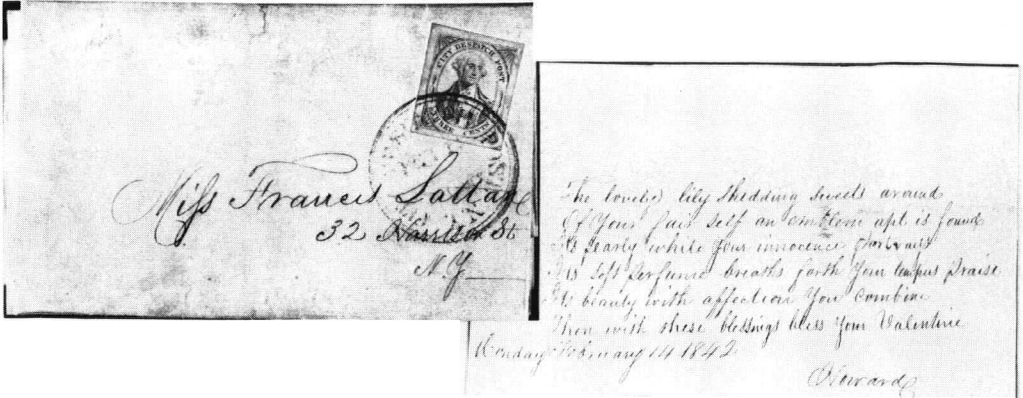 CITY DESPATCH POST
THREE CENTS
Miss Francis Lattan
32 Harrison St
N.Y.
The lovely lily shedding sweets around
Of Your fair self an emblem apt is found
Its pearly white your innocence portrays
Its soft perfume breaths forth Your praise
Its beauty with affection You combine
Then with these blessings bless Your Valentine
Monday February 14 1842
Howard